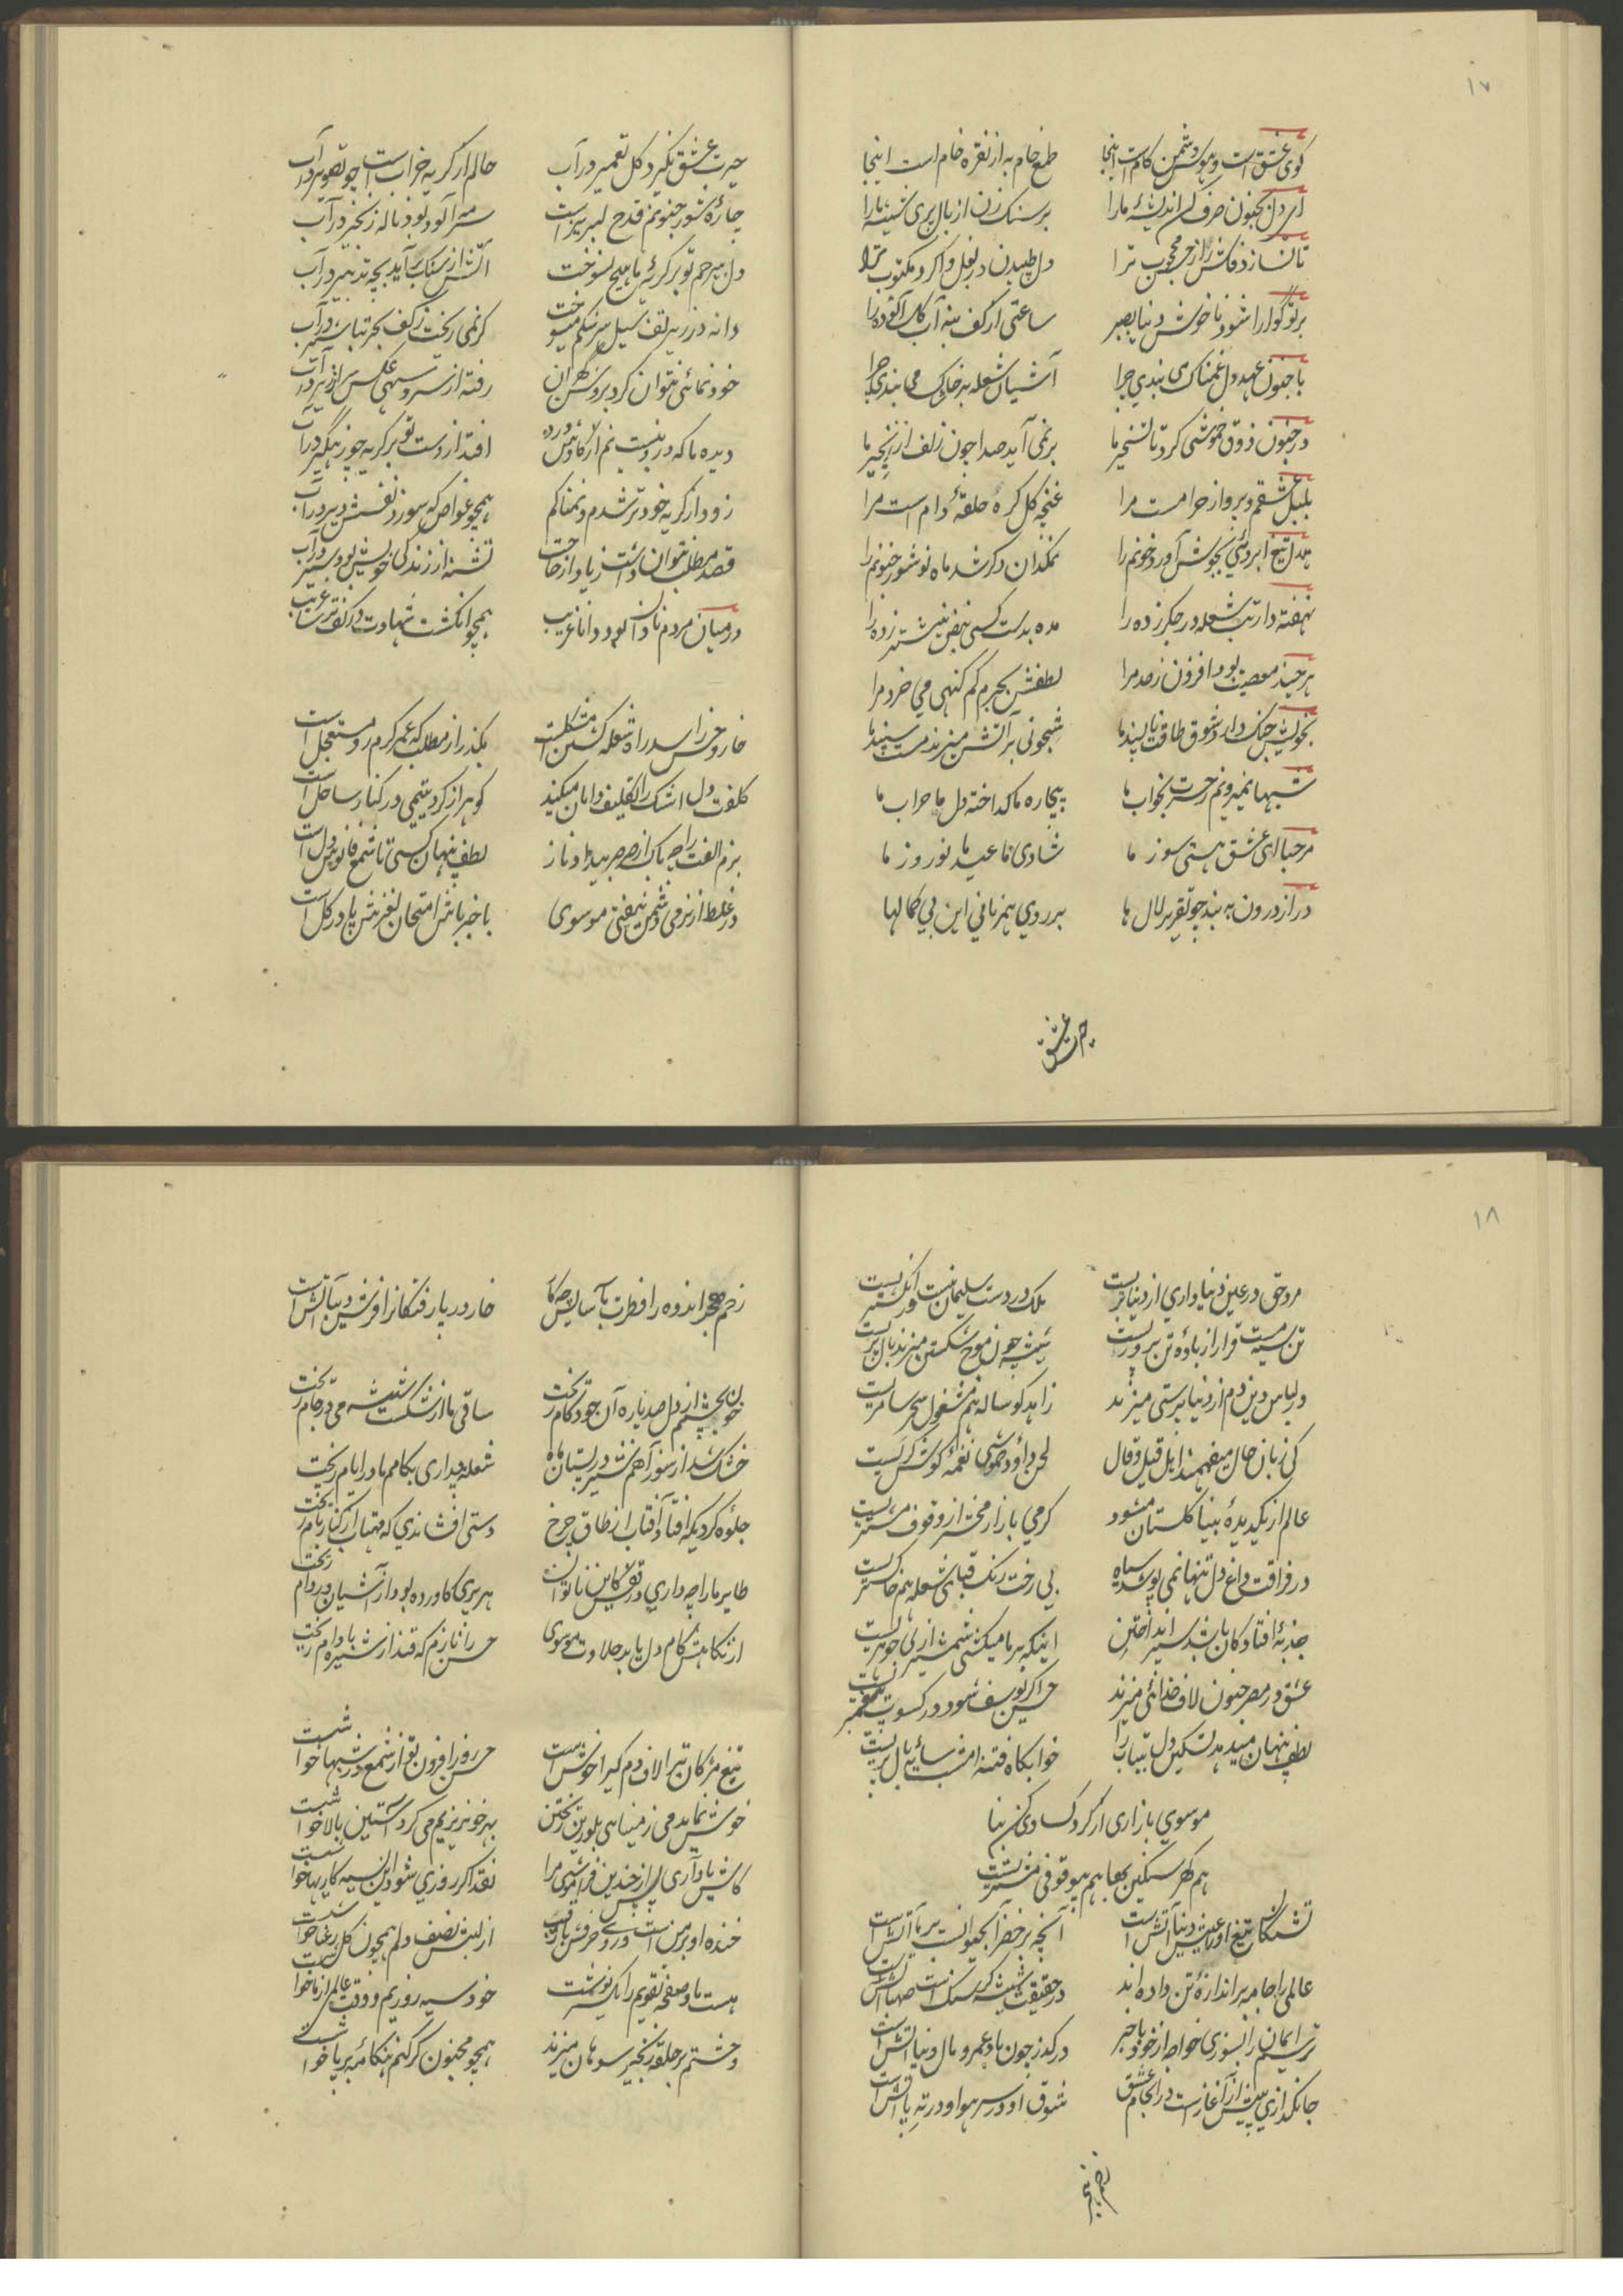 ۱۷
کوی عشق است و هوس دشمن کام است اینجا
طمع خام به از نقره خام است اینجا
ای دل بجنون صرف کن اندیشهٔ ما را
بر سنگ زن از بال پری شیشهٔ ما را
تا نسازد فاش راز محبوب ترا
دل طپیدن در بغل وا کرد مکتوب ترا
بر تو گوارا شود ناخوش دنیا بصبر
ساعتی از کف بنه آب گل آلوده را
با جنون عهد دل غمناک می بندی چرا
آشیان شعله بر خاشاک می بندی چرا
در جنون ذوق خموشی کرد تا تسخیر ما
بر نمی آید صدا چون زلف از زنجیر ما
بلبل عشقم و پرواز حرامست مرا
غنچه گل گره حلقهٔ دام است مرا
هلال تیغ ابروئی بجوش آورد خونم را
نمکدان دگر شد ماه نو شور جنونم را
نهفته دار تب شعله در جگر زده را
مده بدست کسی نبض نیشتر زده را
هر چند معصیت بود افزون ز حد مرا
لطفش بجرم کم گنهی می خرد مرا
بخویش جنگ دارد شوق طاقت ناپسند ما
شبخونی بر آتش میزند مست سپند ما
شبها نمیرویم ز حسرت بخواب ما
بیچاره ما گداخته دل ما خراب ما
مرحبا ای عشق هستی سوز ما
شادی ما عید ما نوروز ما
در از درون به بند چو تقریر لال ها
بر روی همزبانی این بی کمالها
حیرت عشق
حیرت عشق نگیرد گل تعمیر در آب
حالم از گریه خراب است چو تصویر در آب
چارهٔ شور جنونم قدح لبریز است
سرمه آلود بود ناله زنجیر در آب
دل بیرحم تو بر گریهٔ ما هیچ نسوخت
آتش از سنگ برآید بچه تدبیر در آب
دانه در زیر تف سیل سرشکم میسوخت
گر نمی ریخت ز کف بحر تباشیر در آب
خود نمائی نتوان کرد بروشن گهران
رفته از سرو سهی عکس سرازیر در آب
دیده ما که درو نیست نم از کاوش درد
افتد از دست تو بر گریه چو زهگیر در آب
زود از گریه خود تر شدم و نمناکم
همچو غواص که سوزد نفسش دیر در آب
قصد مطلب نتوان داشت زیاد از حاجت
تشنه از زندگی خویش بود سیر در آب
در میان مردم نادان بود دانا غریب
همچو انگشت شهادت در کف ترسا غریب
خار و خس را سد راه شعله گشتن مشکلست
بگذر از مطلب که عمر گرم رو مستعجل است
کلفت دل اشک را تکلیف دامان میکند
گوهر از گرد یتیمی در کنار ساحل است
بزم الفت را چه باک از صرصر بیداد و ناز
لطف پنهان کسی تا شمع فانوس دل است
در غلط از نرمی دشمن نیفتی موسوی
با خبر باش امتحان لغزش پا در گل است
۱۸
مرد حق در عین دنیاداری از دنیا بریست
ملک در دست سلیمان نیست در انگشتریست
تن سیه مست قرار از بادهٔ تن پروریست
شیشه چون موج شکستن میزند بال پریست
در لباس دین دم از دنیاپرستی میزند
زاهد گوساله هم مشغول سحر سامریست
کی زبان حال میفهمند اهل قیل و قال
لحن داود خموشی نغمهٔ گوش کریست
عالم از یک دیدهٔ بینا گلستان میشود
گرمی بازار محشر از وقوف مشتریست
در فراقت داغ دل تنها نمی پوشد سیاه
بی رخت رنگ قبای شعله هم خاکستریست
جذبهٔ افتادگان باشد سپر انداختن
اینکه بر ما میکشی شمشیر از بی جوهریست
عشق در مصر جنون لاف خدائی میزند
حسن اگر یوسف شود در کسوت پیغمبریست
لطف پنهان میدهد تسکین دل بیتاب را
خوابگاه فتنه امشب سایهٔ بال پریست
موسوی بازاری از گرد کسادی کن بنا
هم گهر سنگین بها هم بیوقوفی مشتریست
تشنگان تیغ او را عیش دنیا آتش است
آنچه بر خضر آبحیوانست بر ما آتش است
عالمی را جامه بر اندازهٔ تن داده اند
در حقیقت شیشه گر سنگ است صهبا آتش است
ترسم ایمان را بسوزی خواجه از خود با خبر
در گذر چون باد عمر و مال دنیا آتش است
جانگدازی پیش از آغازست در انجام عشق
شوق او در سر هوا و در ته پا آتش است
زخم خنجر
زخم خنجر اندوه را فطرت بآسایش چه کار
خار در پا رفتگانرا فرش دیبا آتش است
خون بچشمم از دل صد پاره آن خودکام ریخت
ساقی ما از شکست شیشه می در جام ریخت
خشک شد از سوز آهم شیر در پستان ماه
شعله جداری بکامم مادر ایام ریخت
جلوه کردی که افتاد آفتاب از طاق چرخ
دستی افشاندی که مهتاب از کنار بام ریخت
طایر ما را چه داری در قفس کاین ناتوان
هر پری کاورده بود از آشیان در دام ریخت
از نگاهش کام دل یابد حلاوت موسوی
حسن را نازم که قند از شیره بادام ریخت
تیغ مژگان ترا لاف دم گیرا خوش است
حسن روز افزون تو از شمع در شبها خوش است
خوش نماید می ز مینا بی بلورین ریختن
بهر خونریزیم می کرد آستین بالا خوش است
کاش یاد آری پس از چندین فراموشی مرا
نقد اگر روزی شود این نسیه کاریها خوش است
خنده او بر من است و روی حرفش با رقیب
از لبش نصف دلم همچون گل رعنا خوش است
هست با صفحه تقویم را یک سرنوشت
خود سیه روزیم و وقت عالمی از ما خوش است
وحشتم بر حلقه زنجیر سوهان میزند
همچو مجنون گر کنم هنگامه بر پا خوش است